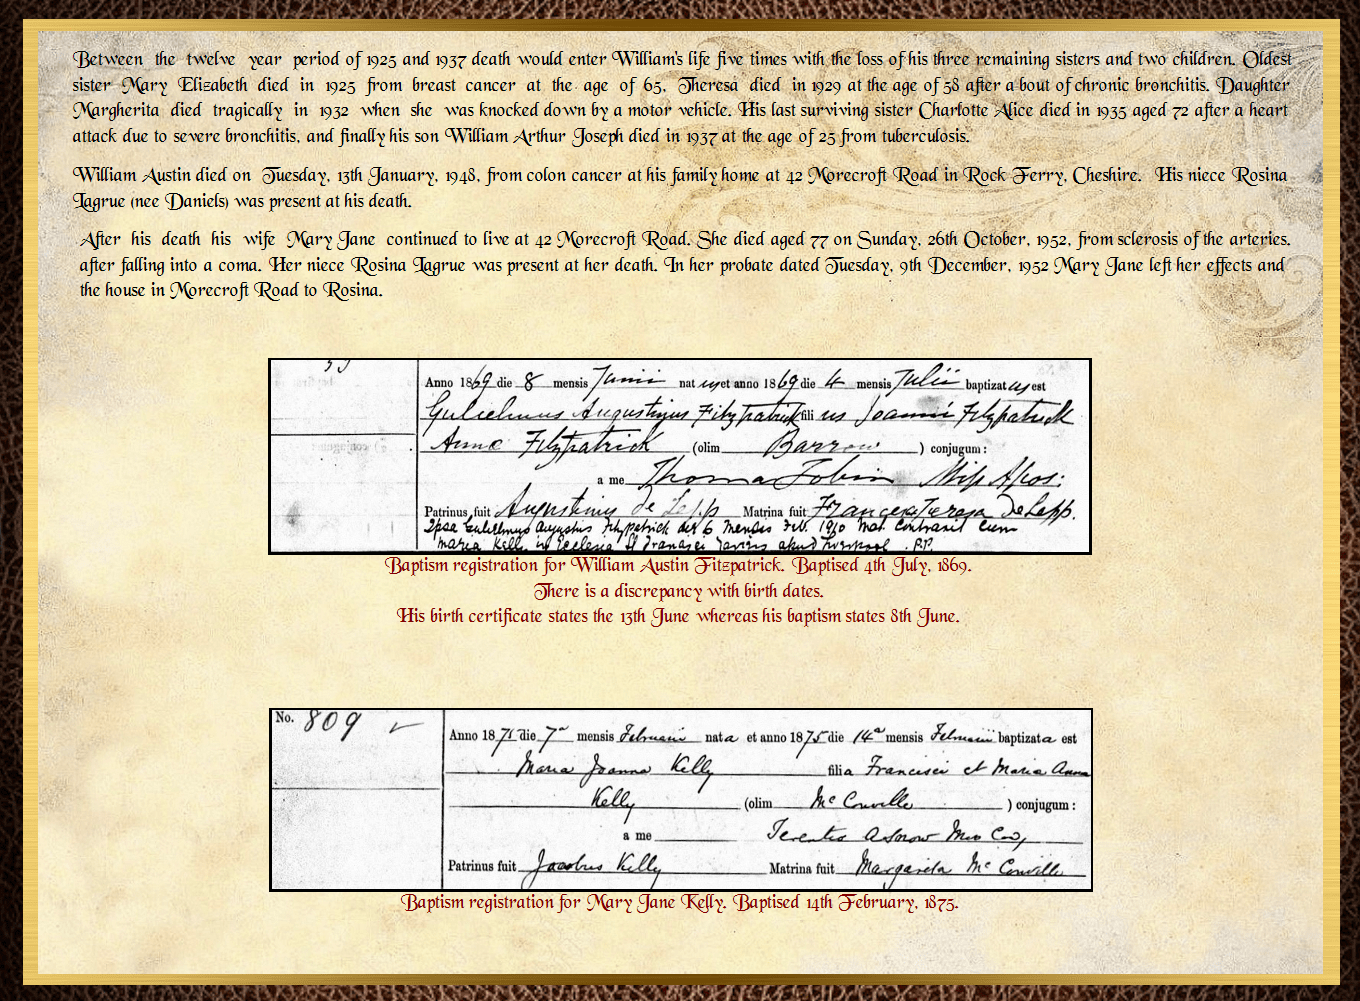 Between the twelve year period of 1925 and 1937 death would enter William's life five times with the loss of his three remaining sisters and two children. Oldest
sister Mary Elizabeth died in 1925 from breast cancer at the age of 65, Theresa died in 1929 at the age of 58 after a bout of chronic bronchitis. Daughter
Margherita died tragically in 1932 when she was knocked down by a motor vehicle. His last surviving sister Charlotte Alice died in 1935 aged 72 after a heart
attack due to severe bronchitis, and finally his son William Arthur Joseph died in 1937 at the age of 25 from tuberculosis.
William Austin died on Tuesday, 13th January, 1948, from colon cancer at his family home at 42 Morecroft Road in Rock Ferry, Cheshire. His niece Rosina
Lagrue (nee Daniels) was present at his death.
After his death his wife Mary Jane continued to live at 42 Morecroft Road. She died aged 77 on Sunday, 26th October, 1952, from sclerosis of the arteries,
after falling into a coma. Her niece Rosina Lagrue was present at her death. In her probate dated Tuesday, 9th December, 1952 Mary Jane left her effects and
the house in Morecroft Road to Rosina.
Anno 1869 die 8 mensis Junii natus et anno 1869 die 4 mensis Julii baptizatus est
Gulielmus Augustinus Fitzpatrick filius Joannis Fitzpatrick
Anna Fitzpatrick (olim Barrow ) conjugum:
a me Thoma Tobin Miss Apos:
Patrinus fuit Augustinus de Lepp Matrina fuit Francesca Teresa De Lepp.
Gulielmus Augustus Fitzpatrick die 6 Mensis Feb. 1910 Mat. Contraxit Cum
Maria Kelly in Ecclesia St Francisci Xaverii apud Liverpool. P.P.
Baptism registration for William Austin Fitzpatrick. Baptised 4th July, 1869.
There is a discrepancy with birth dates.
His birth certificate states the 13th June whereas his baptism states 8th June.
No. 809
Anno 1875 die 7a mensis Februarii nata et anno 1875 die 14a mensis Februarii baptizata est
Maria Joanna Kelly filia Francisci et Maria Anna
Kelly (olim McConville ) conjugum:
a me
Patrinus fuit Jacobus Kelly Matrina fuit Margareta McConville
Baptism registration for Mary Jane Kelly. Baptised 14th February, 1875.